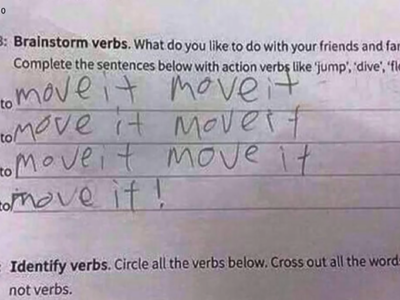 3: Brainstorm verbs. What do you like to do with your friends and
Complete the sentences below with action verbs like 'jump', 'dive',
to move it move it
to move it move it
to move it move it
to move it!
Identify verbs. Circle all the verbs below. Cross out all the
not verbs.